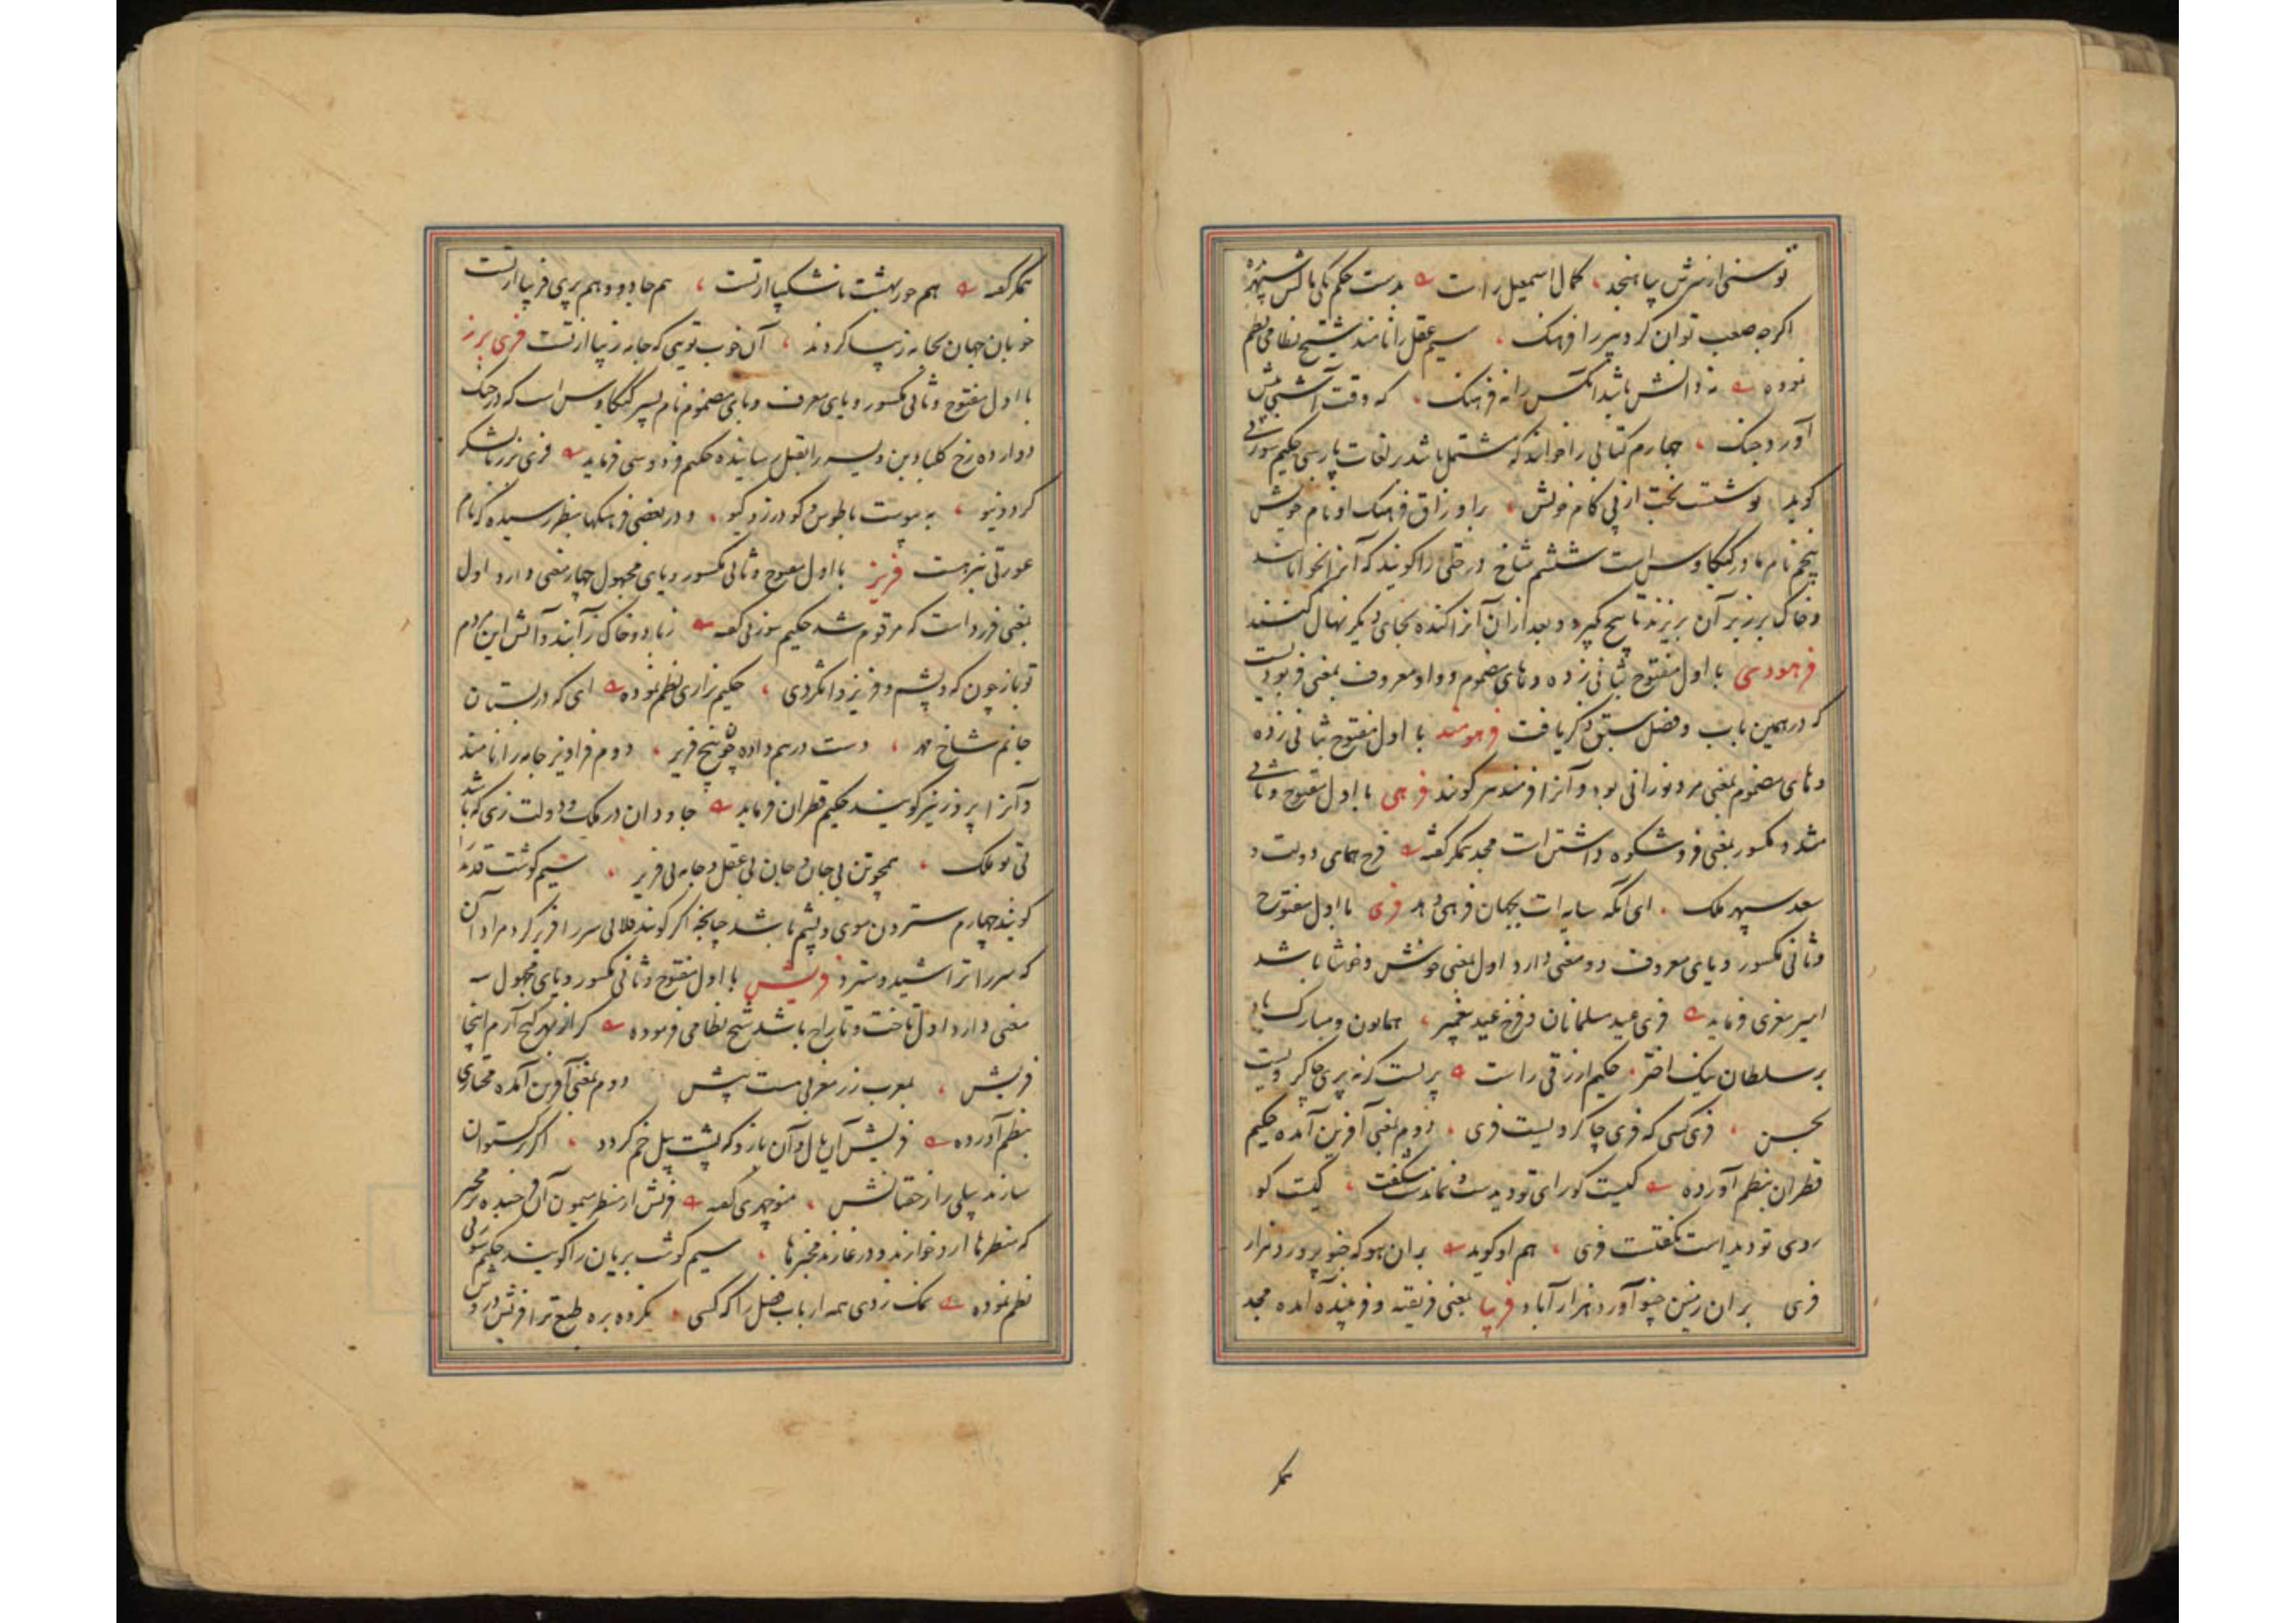 توسنی از سرش بیاهنجد ، کمال اسمعیل راست بدست حکم یکی مالش سپهر بده
اگرچه صعب توان کرد پیر را فرهنگ ، سیم عقل را نامند شیخ نظامی نظم
نموده نه دانش باشد آنکس را نه فرهنگ ، که وقت آشتی پیش
آورد جنگ ، چهارم کتابی را خوانند که مشتمل باشد بر لغات پارسی حکیم سوزنی
گوید نوشت بخت از پی کام خویش ، بر اوراق فرهنگ او نام خویش
پنجم نام مادر کیکاوس است ششم شاخ درختی را گویند که آنرا بخوابانند
و خاک بر زبر آن بریزند تا بیخ گیرد و بعد از آن آنرا کنده بجای دیگر نهال کنند
فرهودی با اول مفتوح بثانی زده و های مضموم و واو معروف بمعنی فربودیست
که در همین باب و فصل سبق ذکر یافت فرهومند با اول مفتوح بثانی زده
و های مضموم بمعنی مرد نورانی بود و آنرا فرمند نیز گویند فرهی با اول مفتوح و ثانی
مشدد مکسور بمعنی فر و شکوه داشتن است مجد همگر گفته فرخ همای دولت و
سعد سپهر ملک ، ای آنکه سایه ات بجهان فرهی دهد فری با اول مفتوح
و ثانی مکسور و یای معروف دو معنی دارد اول بمعنی خوش و خوشا باشد
امیر معزی فرماید فری عید مسلمانان و فرخ عید پیغمبر ، همایون و مبارک باد
بر سلطان نیک اختر ، حکیم ازرقی راست پرستد گرنه پری چاکر ویست
بحسن ، فری کسی که فری چاکر ویست فری ، دوم بمعنی آفرین آمده حکیم
قطران بنظم آورده کیست کو رای تو دیدست و نماندست شگفت ، کیست کو
روی تو دیداست نگفتست فری ، هم او گوید بر آن هو که خو پرورد هزار
فری بر آن زمین چنو آورد هزار آباد فریبا بمعنی فریفته و فریبنده آمده مجد
همگر
همگر گفته هم حور بهشت ناشکیبا از تست ، هم جادو و هم پری فریبا از تست
خوبان جهان بجامه زیبا گردند ، آن خوب تویی که جامه زیبا از تست فری برز
با اول مفتوح و ثانی مکسور و یای معروف و بای مضموم نام پسر کیکاوس است که در جنگ
دوازده رخ کلباد بن ویسه را بقتل رسانیده حکیم فردوسی فرماید فری برز لشکر
کرد و نیو ، به پیوست با طوس و گودرز و گیو ، و در بعضی فرهنگها بنظر رسیده که نام
عورتی نیز هست فریز با اول مفتوح و ثانی مکسور و یای مجهول چهار معنی دارد اول
بمعنی فرزد است که مرقوم شد حکیم سوزنی گفته ز باد و خاک ز آبند و آتش این مردم
تو باز چون که و پشم و فریز و انگردی ، حکیم نزاری نظم نموده ای که در بستان
جانم شاخ مهر ، دست درهم داده چو بیخ فریز ، دوم فراویز جامه را نامند
و آنرا پروز نیز گویند حکیم قطران فرماید جاودان در ملک و دولت زی که باشد
بی تو ملک ، همچو تن بی جان و جان بی عقل و جامه بی فریز ، سیم گوشت قدید را
گویند چهارم ستردن موی و پشم باشد چنانچه اگر گویند فلانی سر را فریز کرد مراد آن
که سر را تراشید و سترد فریش با اول مفتوح و ثانی مکسور و یای مجهول سه
معنی دارد اول تاخت و تاراج باشد شیخ نظامی فرموده کز بهر گنج آرم اینجا
فریش ، بمعرب زر مغربی هست بیش دوم بمعنی آفرین آمده مختاری
بنظم آورده فریش آن یال و آن بازو که پشت پیل خم گردد ، اگر برگستوان
سازند پیلی را ز خفتانش ، منوچهری گفته فریش از منظر میمون آن فرخنده تر مخبر
که منظرها ازو خوارند و در عارند مخبرها ، سیم گوشت بریان را گویند حکیم سوزنی
نظم نموده نمک زدی همه ارباب فضل را که کسی ، نکرده بره طبع ترا فریش درو